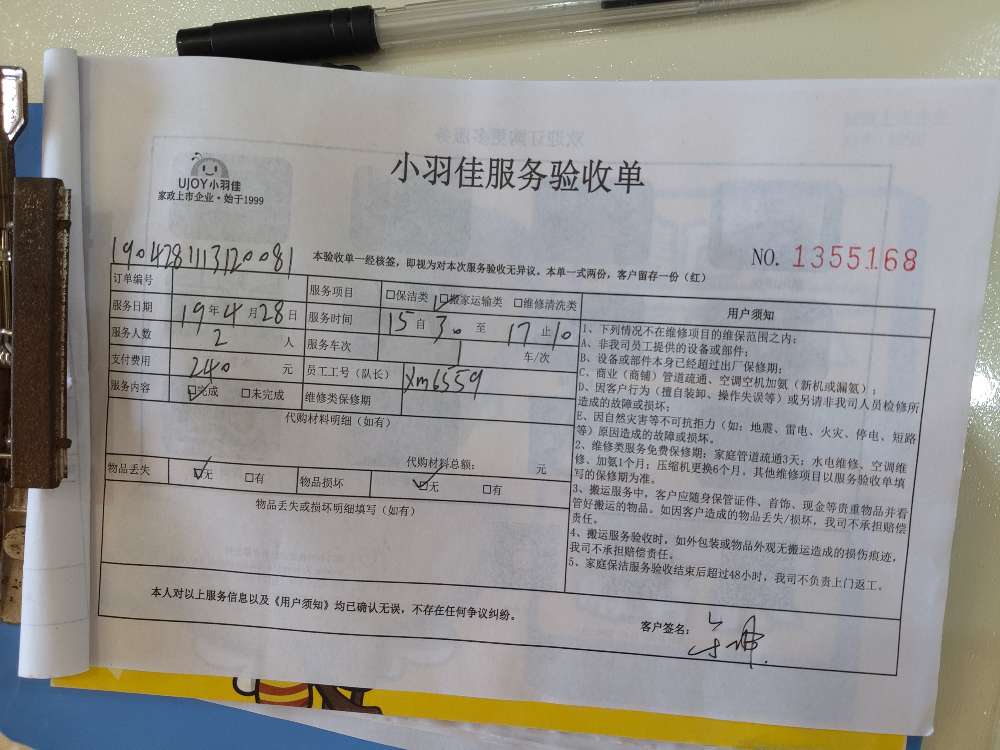 UJOY小羽佳
家政上市企业·始于1999
小羽佳服务验收单
NO. 1355168
1904281113120081
本验收单一经核签，即视为对本次服务验收无异议。本单一式两份，客户留存一份（红）
订单编号 服务项目 □保洁类 □搬家运输类 □维修清洗类
服务日期 19年4月28日 服务时间 15自30至17止10
服务人数 2人 服务车次 1 车/次
支付费用 240元 员工工号（队长） Xm6559
服务内容 □完成 □未完成 维修类保修期
代购材料明细（如有）
代购材料总额： 元
物品丢失 □无 □有 物品损坏 □无 □有
物品丢失或损坏明细填写（如有）
用户须知
1、下列情况不在维修项目的维保范围之内：
A、非我司员工提供的设备或部件；
B、设备或部件本身已经超过出厂保修期；
C、商业（商铺）管道疏通、空调空机加氨（新机或漏氨）；
D、因客户行为（擅自装卸、操作失误等）或另请非我司人员检修所
造成的故障或损坏；
E、因自然灾害等不可抗拒力（如：地震、雷电、火灾、停电、短路
等）原因造成的故障或损坏。
2、维修类服务免费保修期：家庭管道疏通3天；水电维修、空调维
修、加氨1个月；压缩机更换6个月，其他维修项目以服务验收单填
写的保修期为准。
3、搬运服务中，客户应随身保管证件、首饰、现金等贵重物品并看
管好搬运的物品。如因客户造成的物品丢失/损坏，我司不承担赔偿
责任。
4、搬运服务验收时，如外包装或物品外观无搬运造成的损伤痕迹，
我司不承担赔偿责任。
5、家庭保洁服务验收结束后超过48小时，我司不负责上门返工。
本人对以上服务信息以及《用户须知》均已确认无误，不存在任何争议纠纷。
客户签名：